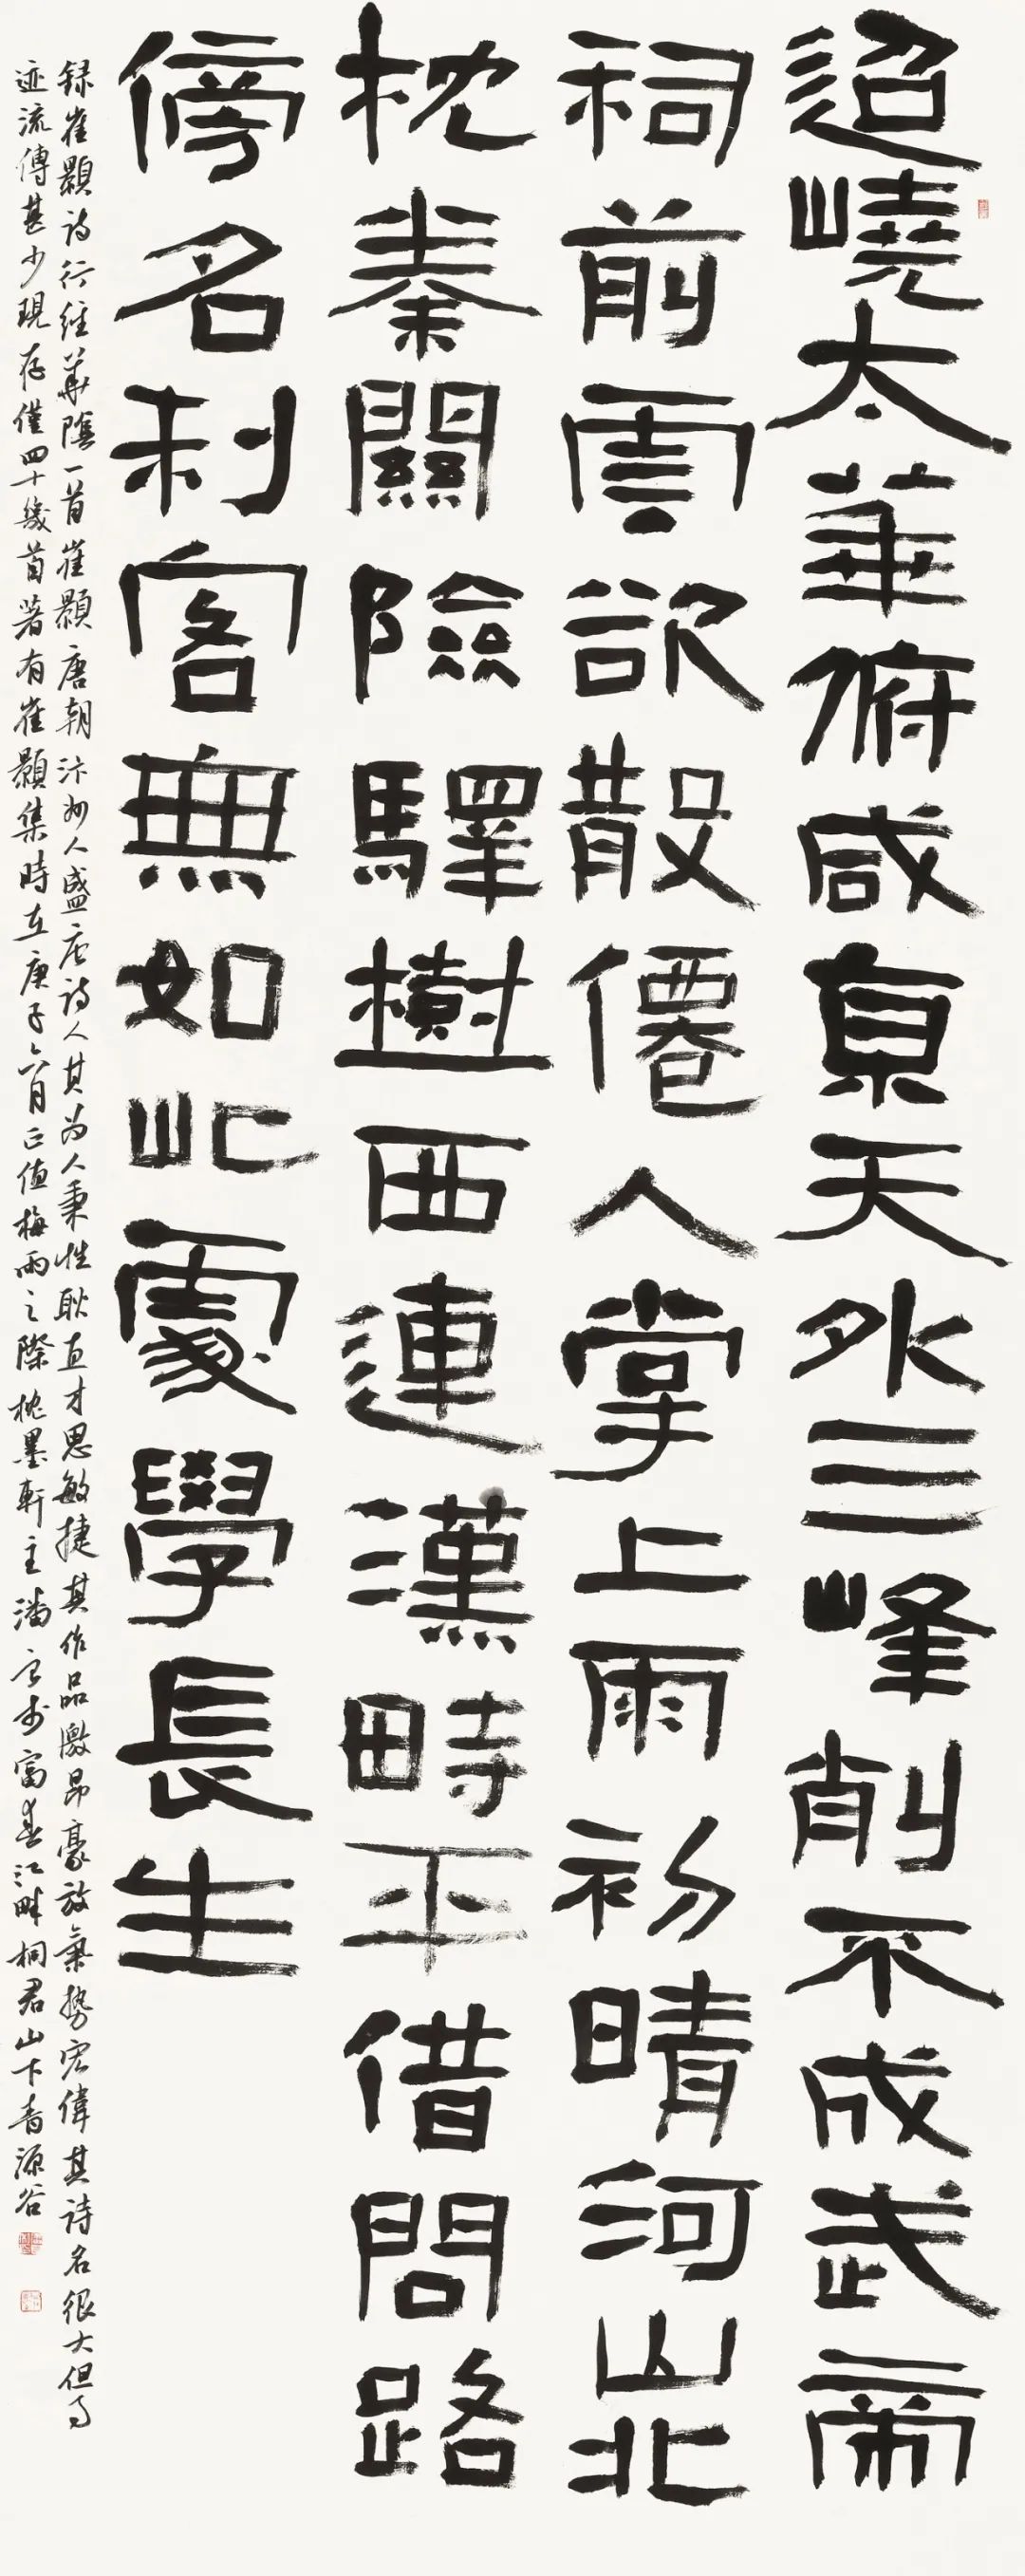 迢嶢太華俯咸京天外三峰削不成武帝
祠前雲欲散僊人掌上雨初晴河山北
枕秦關險驛樹西連漢畤平借問路
傍名利客無如此處學長生
録崔顥詩行經華陰一首崔顥唐朝汴州人盛唐詩人其为人秉性耿直才思敏捷其作品激昂豪放氣勢宏偉其詩名很大但事
迹流傳甚少現存僅四十幾首著有崔顥集時在庚子六月正值梅雨之際枕墨軒主潘於富春江畔桐君山下青源谷